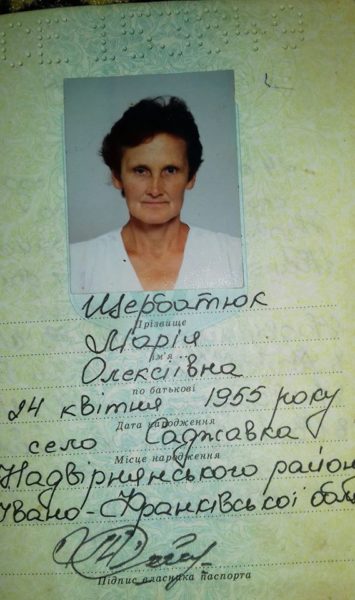 Щербатюк
Прізвище
Марія
Ім'я
Олексіївна
по батькові
24 квітня 1955 року
Дата народження
село Саджавка
Місце народження
Надвірнянського район
Івано-Франківської
Підпис власника паспорта